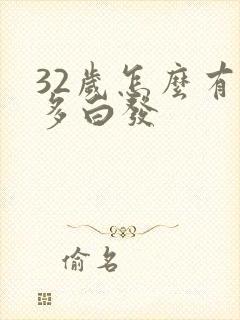 32歲怎麼有
多白發
偷名